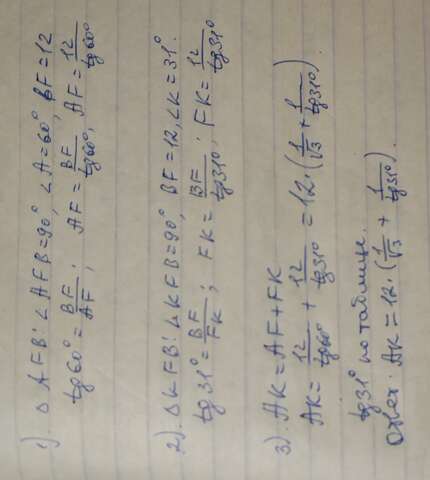 1). △AFB: ∠AFB=90°, ∠A=60°, BF=12
tg60°=BF/AF; AF=BF/tg60°, AF=12/tg60°
2). △KFB: ∠KFB=90°, BF=12, ∠K=31°.
tg31°=BF/FK; FK=BF/tg31°; FK=12/tg31°
3). AK=AF+FK
AK=12/tg60°+12/tg31°=12·(1/√3+1/tg31°)
tg31° по таблице.
Ответ: AK=12·(1/√3+1/tg31°).